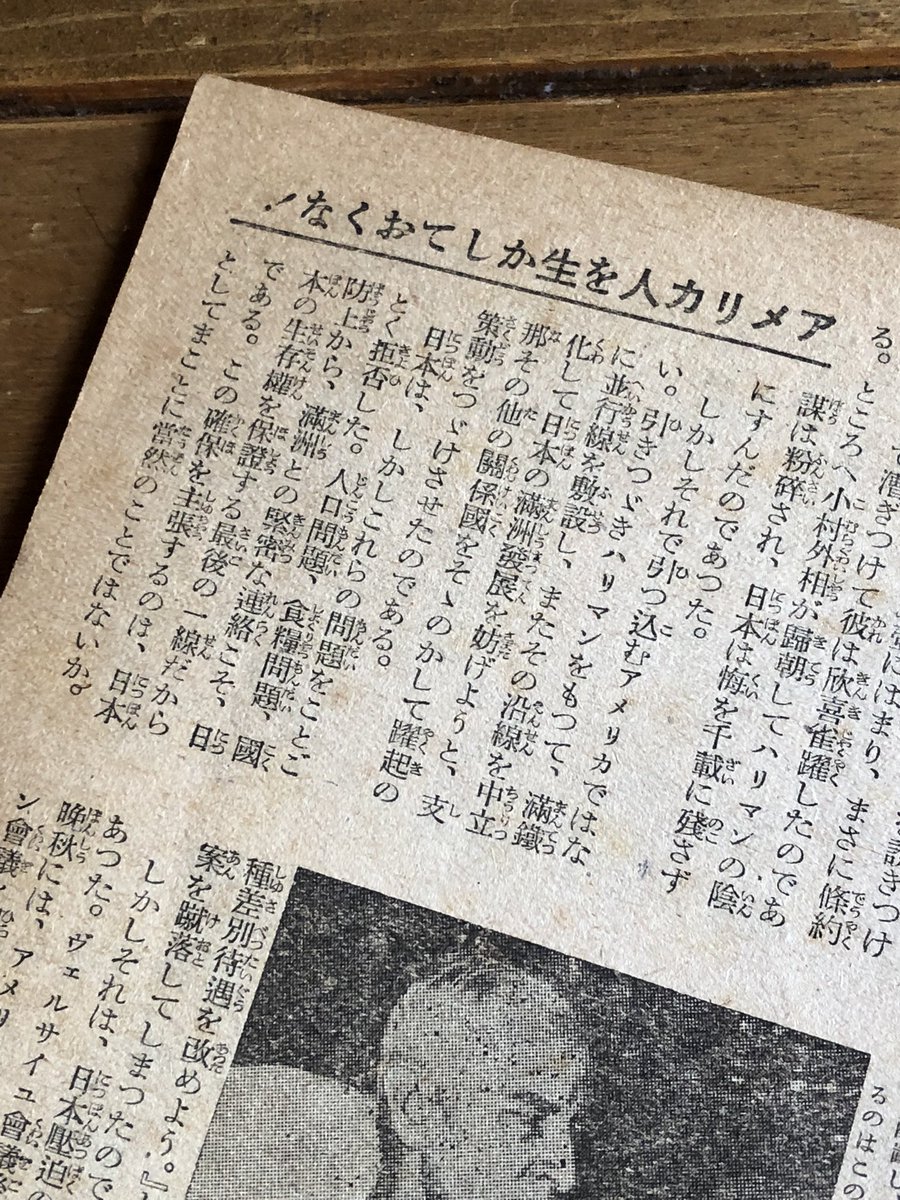 アメリカ人を生かしておくな！
を說きつけ
にはまり、まさに條約
て漕ぎつけて彼は欣喜雀躍したのであ
る。ところへ小村外相が歸朝してハリマンの陰
謀は粉碎され、日本は悔を千載に殘さず
にすんだのであつた。
しかしそれで引つ込むアメリカではな
い。引きつゞきハリマンをもつて、滿鐵
に並行線を敷設し、またその沿線を中立
化して日本の滿洲發展を妨げようと、支
那その他の關係國をそゝのかして躍起の
策動をつゞけさせたのである。
日本は、しかしこれらの問題をことご
とく拒否した。人口問題、食糧問題、國
防上から、滿洲との緊密な連絡こそ、日
本の生存權を保證する最後の一線だから
である。この確保を主張するのは、日本
としてまことに當然のことではないか。
るのはこの
種差別待遇を改めよう。』
案を蹴落してしまつたので
しかしそれは、日本壓迫の
あつた。ヴェルサイユ會議に
晩秋には、アメリ
ン會議